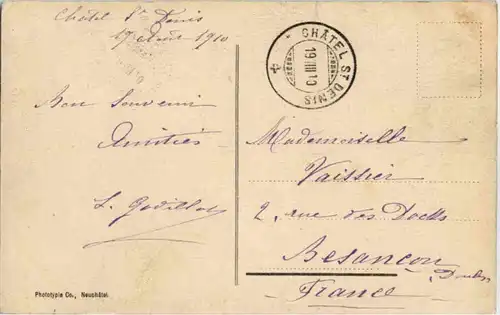 Châtel St Denis
19 Août 1910
CHÂTEL ST DENIS
19 VIII 10
Bon Souvenir
Amitiés
L. Godillot
Mademoiselle
Vaissier
2, rue des Docks
Besançon
Doubs
France
Phototypie Co., Neuchâtel.